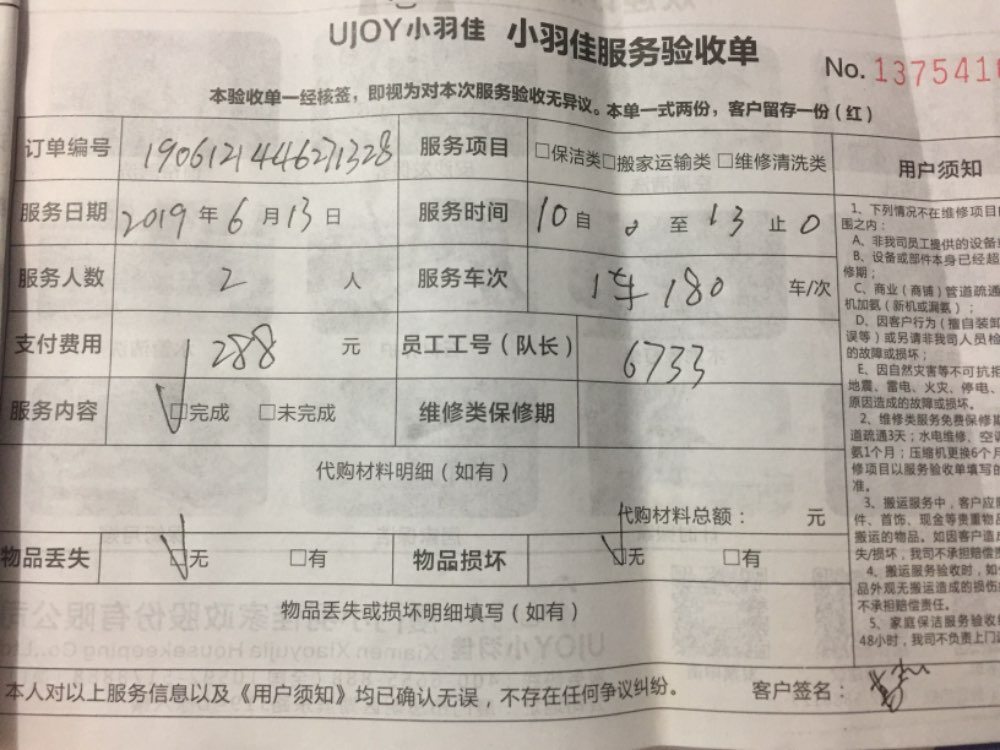 UJOY小羽佳 小羽佳服务验收单
No. 1375416
本验收单一经核签，即视为对本次服务验收无异议。本单一式两份，客户留存一份（红）
订单编号 1906121446271328 服务项目 □保洁类□搬家运输类 □维修清洗类
服务日期 2019 年 6 月 13 日 服务时间 10 自 0 至 13 止 0
服务人数 2 人 服务车次 1车 180 车/次
支付费用 288 元 员工工号（队长） 6733
服务内容 □完成 □未完成 维修类保修期
代购材料明细（如有）
代购材料总额： 元
物品丢失 □无 □有 物品损坏 □无 □有
物品丢失或损坏明细填写（如有）
本人对以上服务信息以及《用户须知》均已确认无误，不存在任何争议纠纷。 客户签名：
用户须知
1、下列情况不在维修项目
围之内：
A、非我司员工提供的设备
B、设备或部件本身已经超
修期；
C、商业（商铺）管道疏通
机加氨（新机或漏氨）；
D、因客户行为（擅自装卸
误等）或另请非我司人员检
的故障或损坏；
E、因自然灾害等不可抗拒
地震、雷电、火灾、停电、
原因造成的故障或损坏。
2、维修类服务免费保修期
道疏通3天；水电维修、空调
氨1个月；压缩机更换6个月
修项目以服务验收单填写的
准。
3、搬运服务中，客户应
件、首饰、现金等贵重物品
搬运的物品。如因客户造成
失/损坏，我司不承担赔偿责
4、搬运服务验收时，如
品外观无搬运造成的损伤
不承担赔偿责任。
5、家庭保洁服务验收
48小时，我司不负责上门